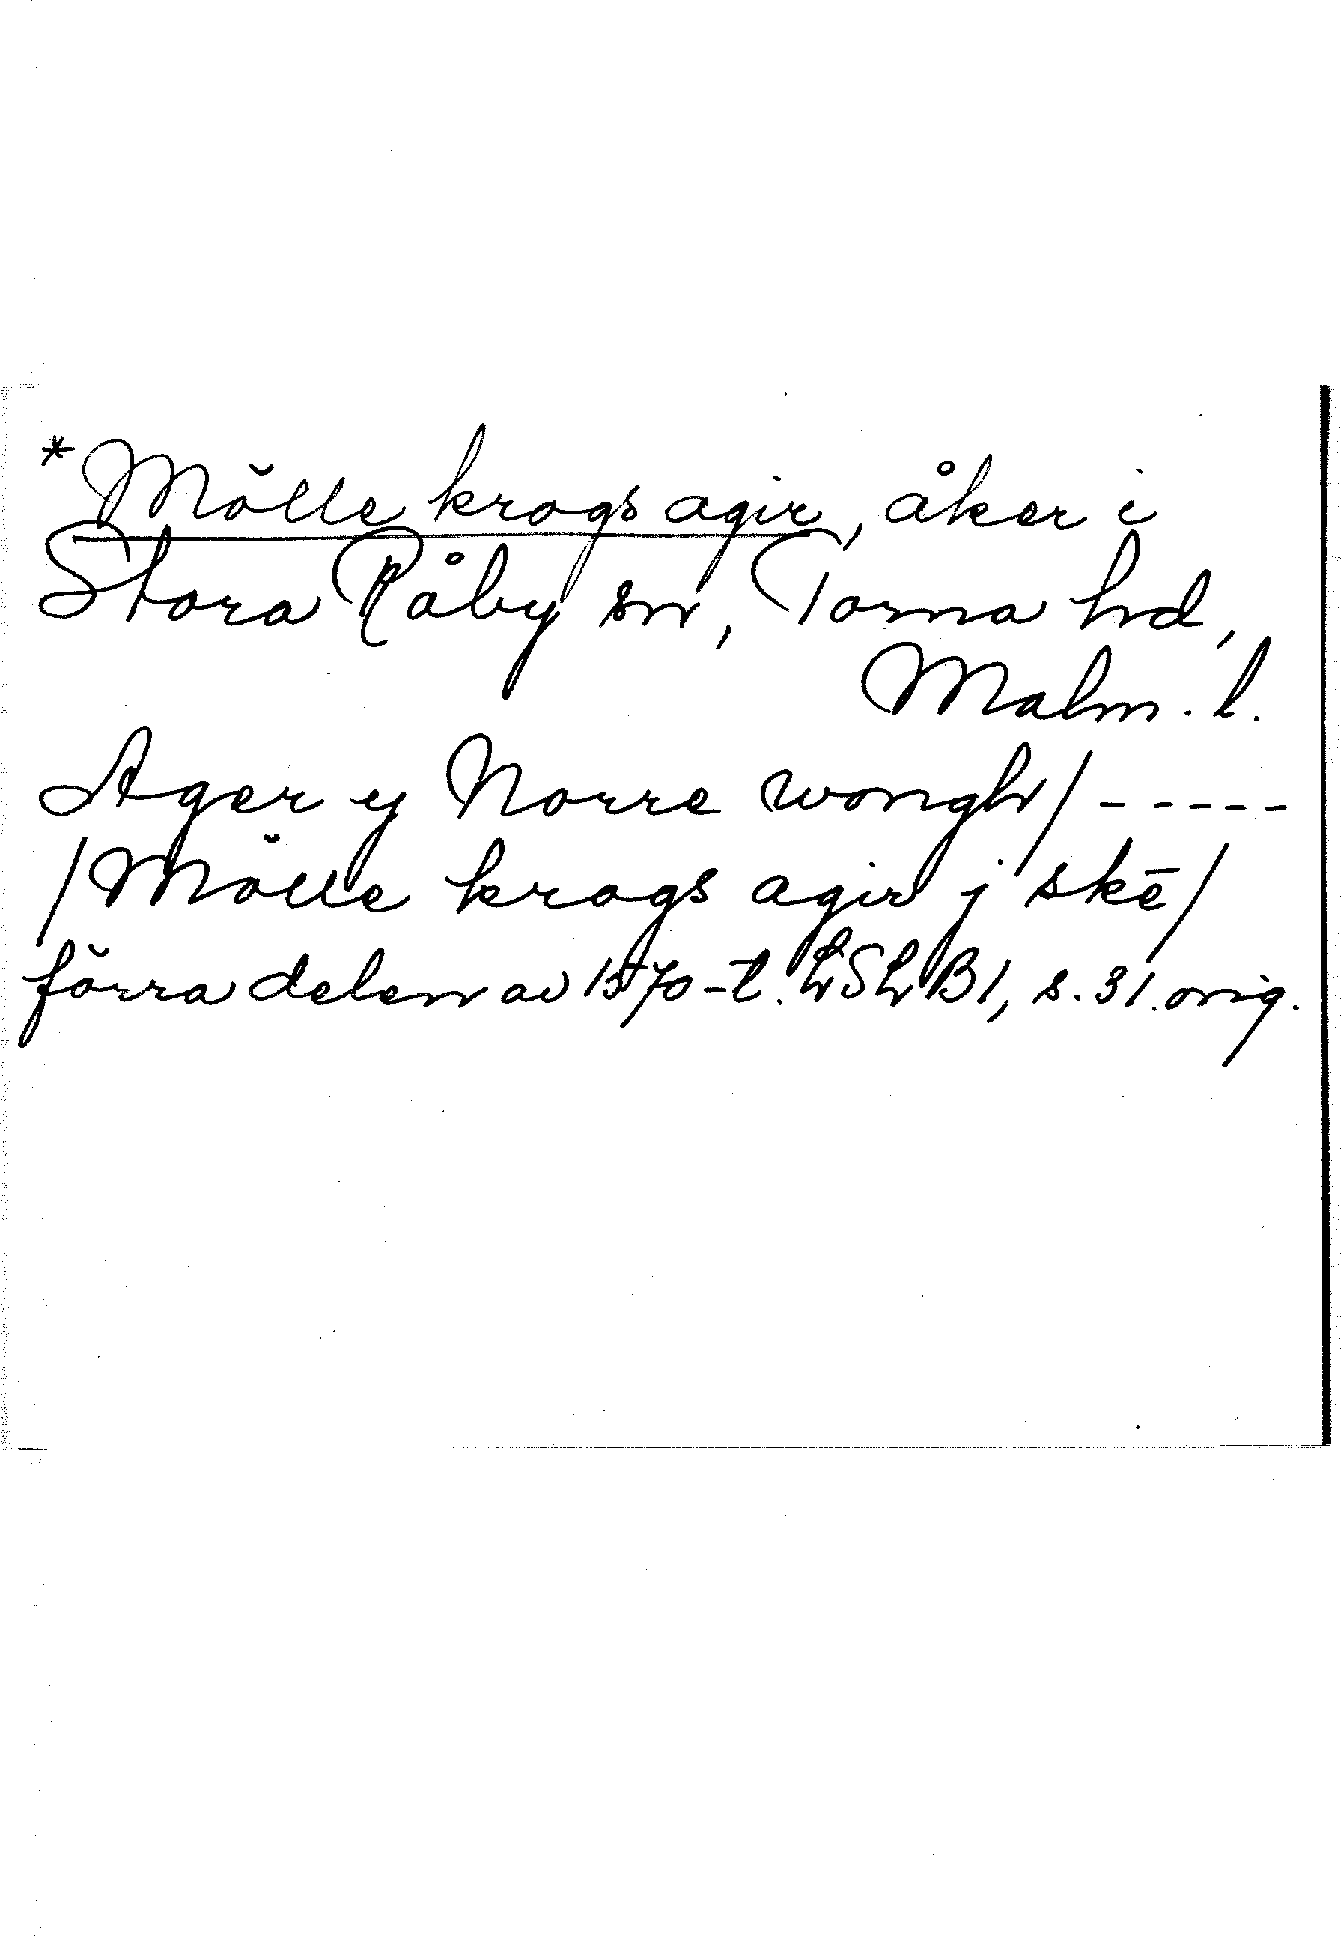 *Mölle krogs agir, åker i
Stora Råby sn, Torna hd,
Malm. l.
Ager y Norre wongh/ - - - - -
/Mölle krogs agir j skē/
förra delen av 1570-t. LSLB1, s. 31. orig.